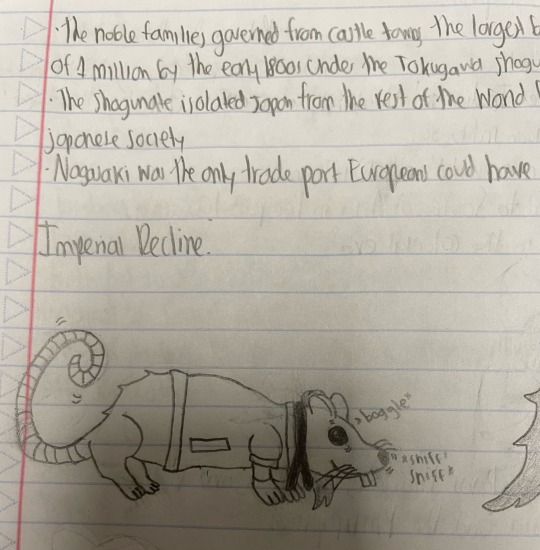 · The noble families governed from castle towns the largest b
of 1 million by the early 1800s under the Tokugawa Shogu
· The Shogunate isolated Japan from the rest of the World
japanese society
· Nagasaki was the only trade port Europeans could have
Imperial Decline.
*boggle*
*sniff
sniff*